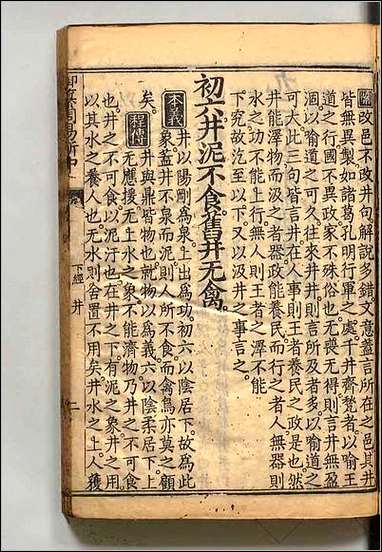 案改邑不改井句解說多錯文意蓋言所在之邑其井
皆無異製如諸葛孔明行軍之處千井齊甃者以喻王
道之行國不異政家不殊俗也无喪无得則言井無盈
涸以喻道之可久往來井井則言所及者多以喻道之
可大此三句皆言井在人事則王者養民之政是也然
井能澤物而汲之者器政能養民而行之者人無器則
水之功不能上行無人則王者之澤不能
下究故汔至以下又以汲井之事言之
初六井泥不食舊井无禽
本義 井以陽剛為泉上出為功初六以陰居下故為此
象蓋井不泉而泥則人所不食而禽鳥亦莫之顧
矣 程傳 井與鼎皆物也就物以為義六以陰柔居下上
无應援无上水之象不能濟物乃井之不可食
也井之不可食以泥汙也在井之下有泥之象井之用
以其水之養人也无水則舍置不用矣井水之上人獲
御纂周易折中
下經 井 二